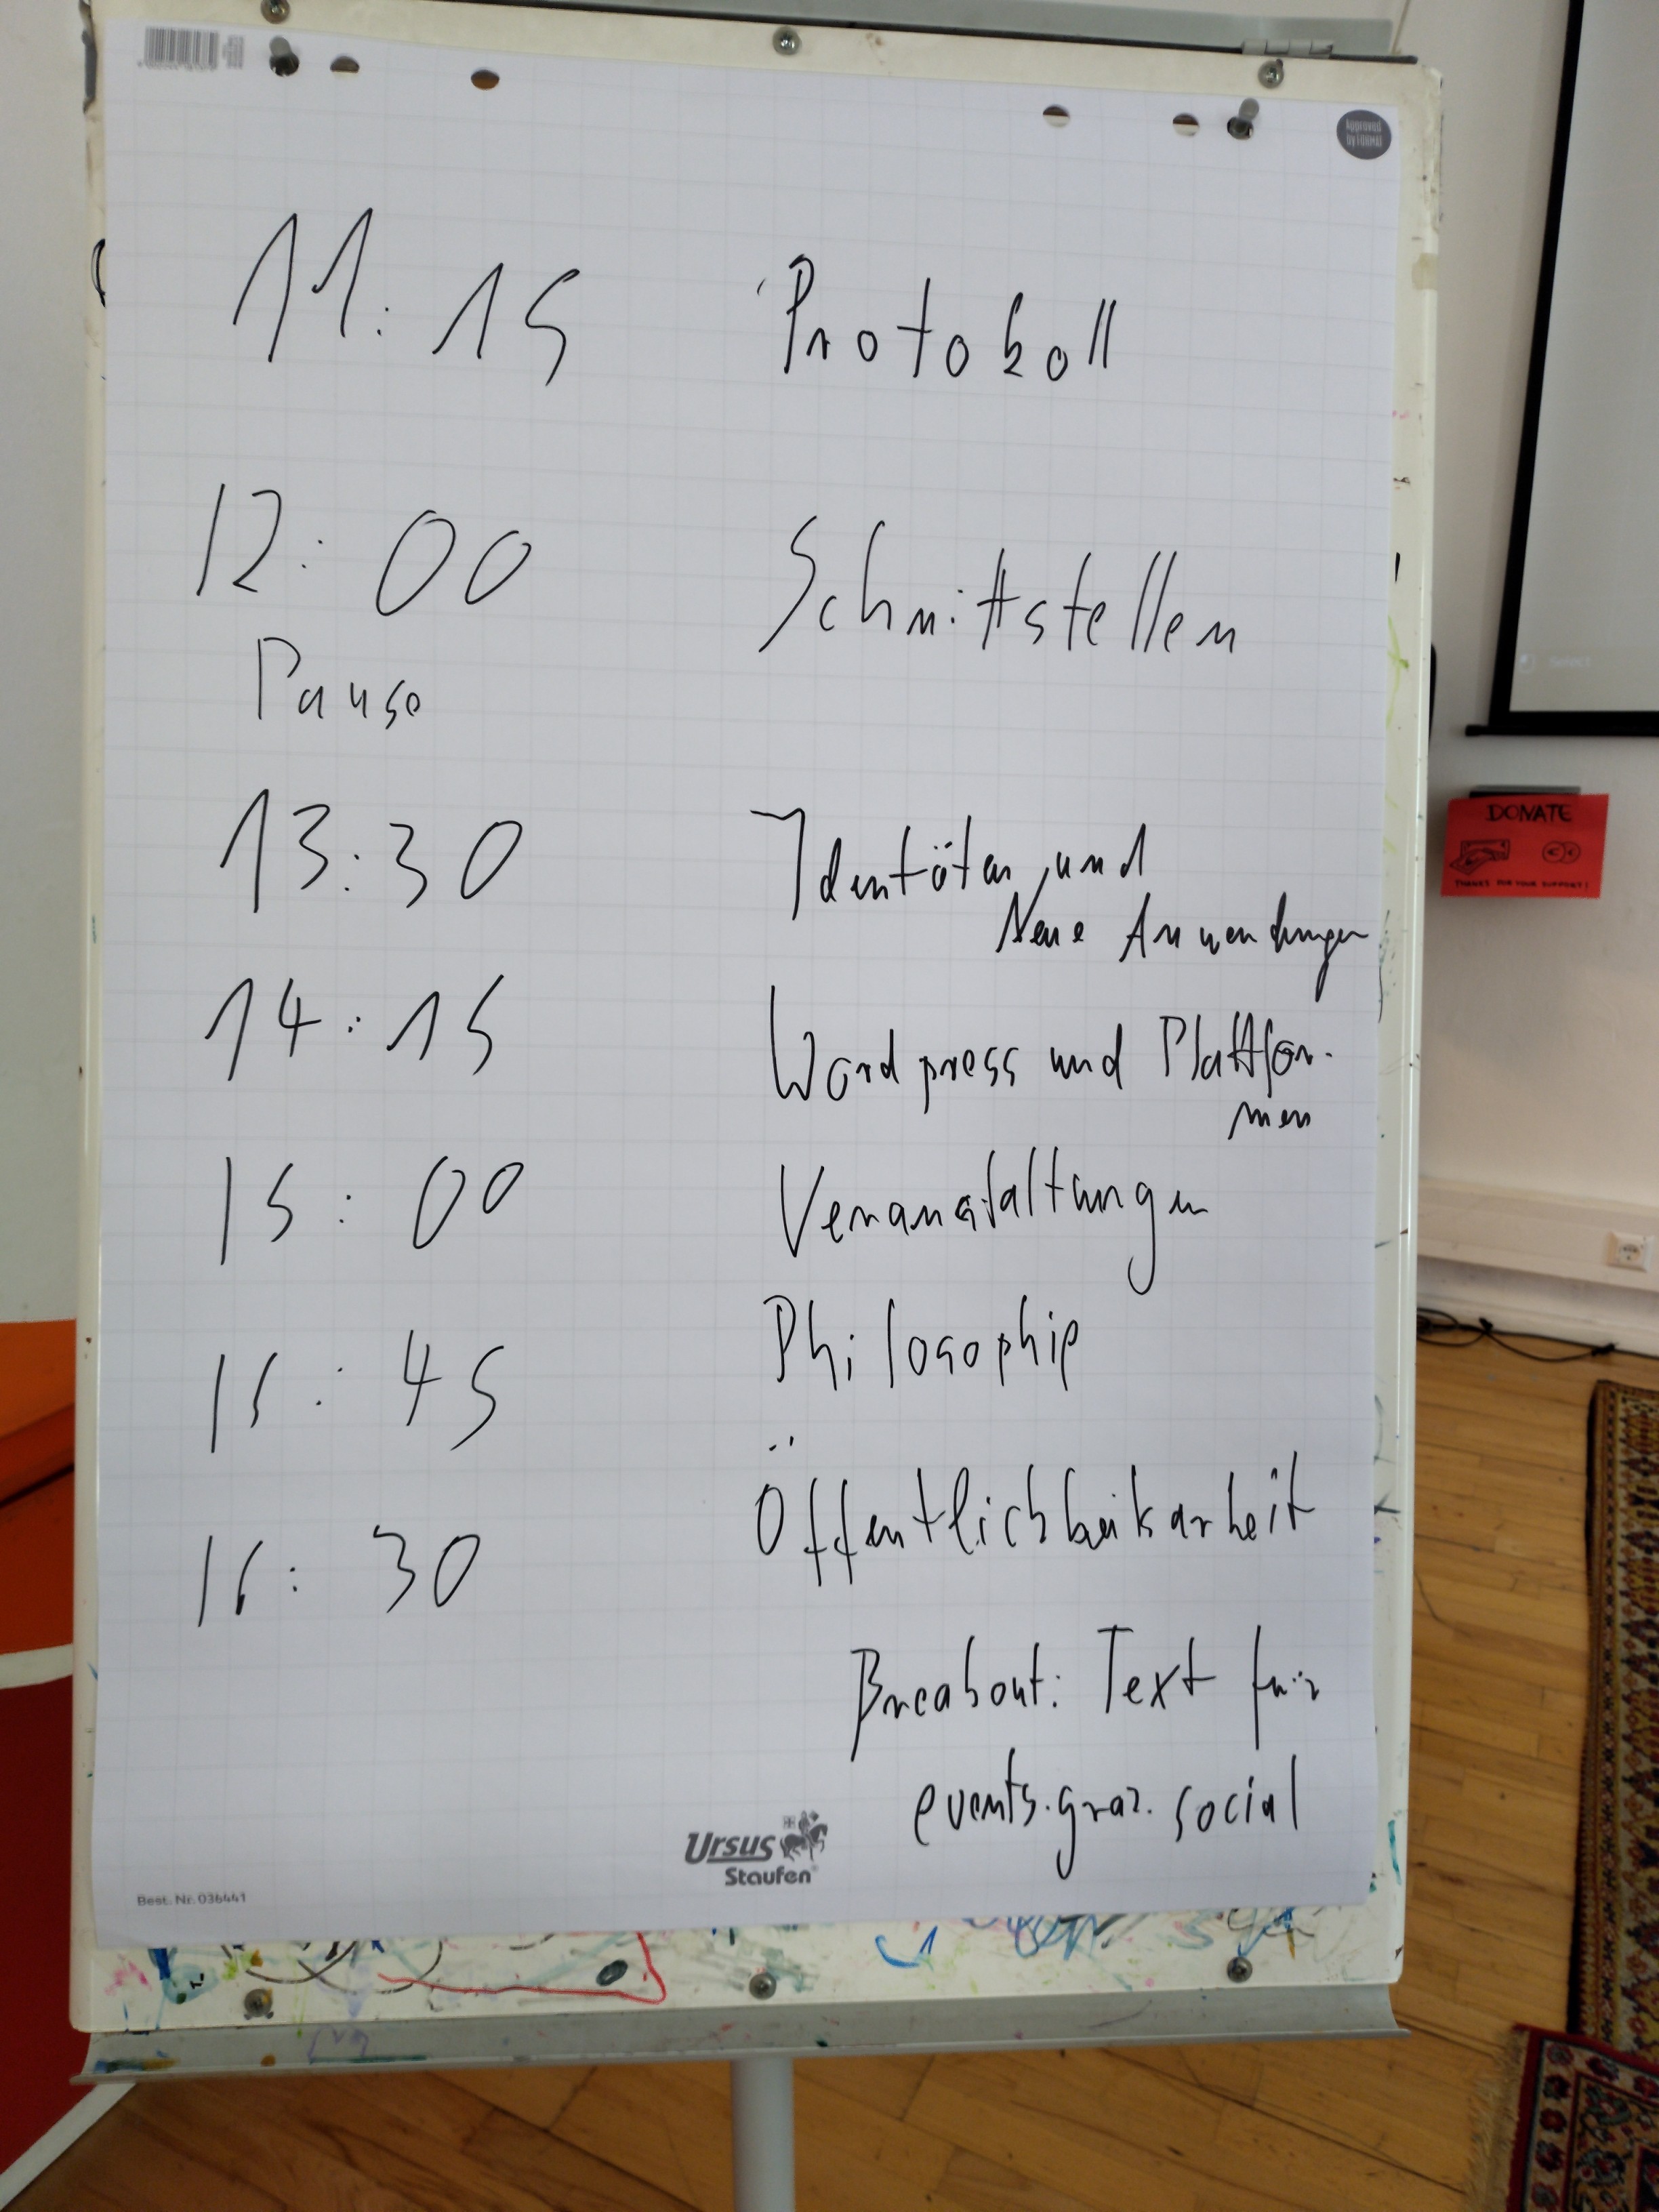 Approved
by FORMAT
11:15 Protokoll
12:00 Schnittstellen
Pause
13:30 Identitäten und
Neue Anwendungen
14:15 Wordpress und Plattfor-
men
15:00 Veranstaltungen
15:45 Philosophie
16:30 Öffentlichkeitsarbeit
Breakout: Text für
events.graz.social
Ursus
Staufen
Best. Nr. 036441
Select
DONATE
THANKS FOR YOUR SUPPORT!